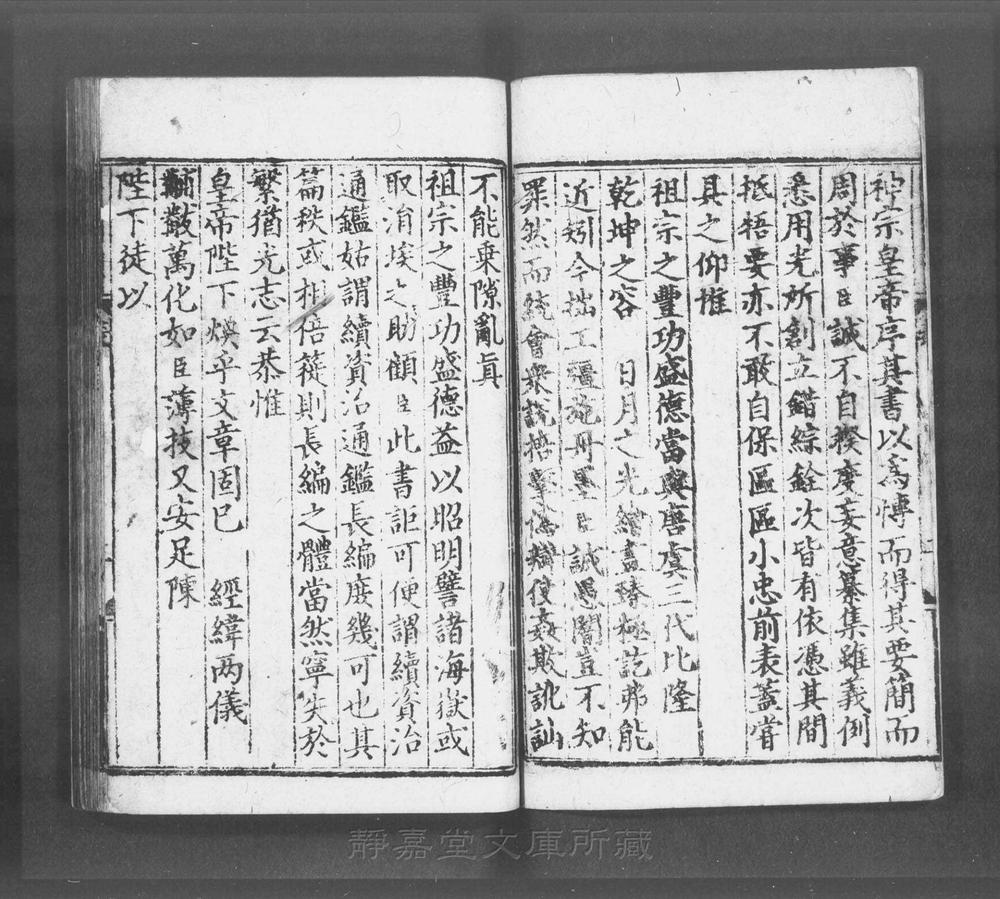 神宗皇帝序其書以爲愽而得其要簡而
周於事臣誠不自揆度妄意纂集雖義例
悉用光所創立錯綜銓次皆有依憑其間
抵牾要亦不敢自保區區小忠前表蓋嘗
具之仰惟
祖宗之豐功盛德當與唐虞三代比隆
乾坤之容　日月之光繪畫臻極訖弗能
近矧今拙工彊施丹墨臣誠愚闇豈不知
罪然而統會衆說掊擊僞辯使姦欺訛訕
不能乗隙亂眞
祖宗之豐功盛德益以昭明譬諸海嶽或
取涓埃之助顧臣此書詎可便謂續資治
通鑑姑謂續資治通鑑長編庻幾可也其
篇秩或相倍蓰則長編之體當然寧失於
繁猶光志云恭惟
皇帝陛下煥乎文章固已　經緯两儀
黼黻萬化如臣薄技又安足陳
陛下徒以
靜嘉堂文庫所藏